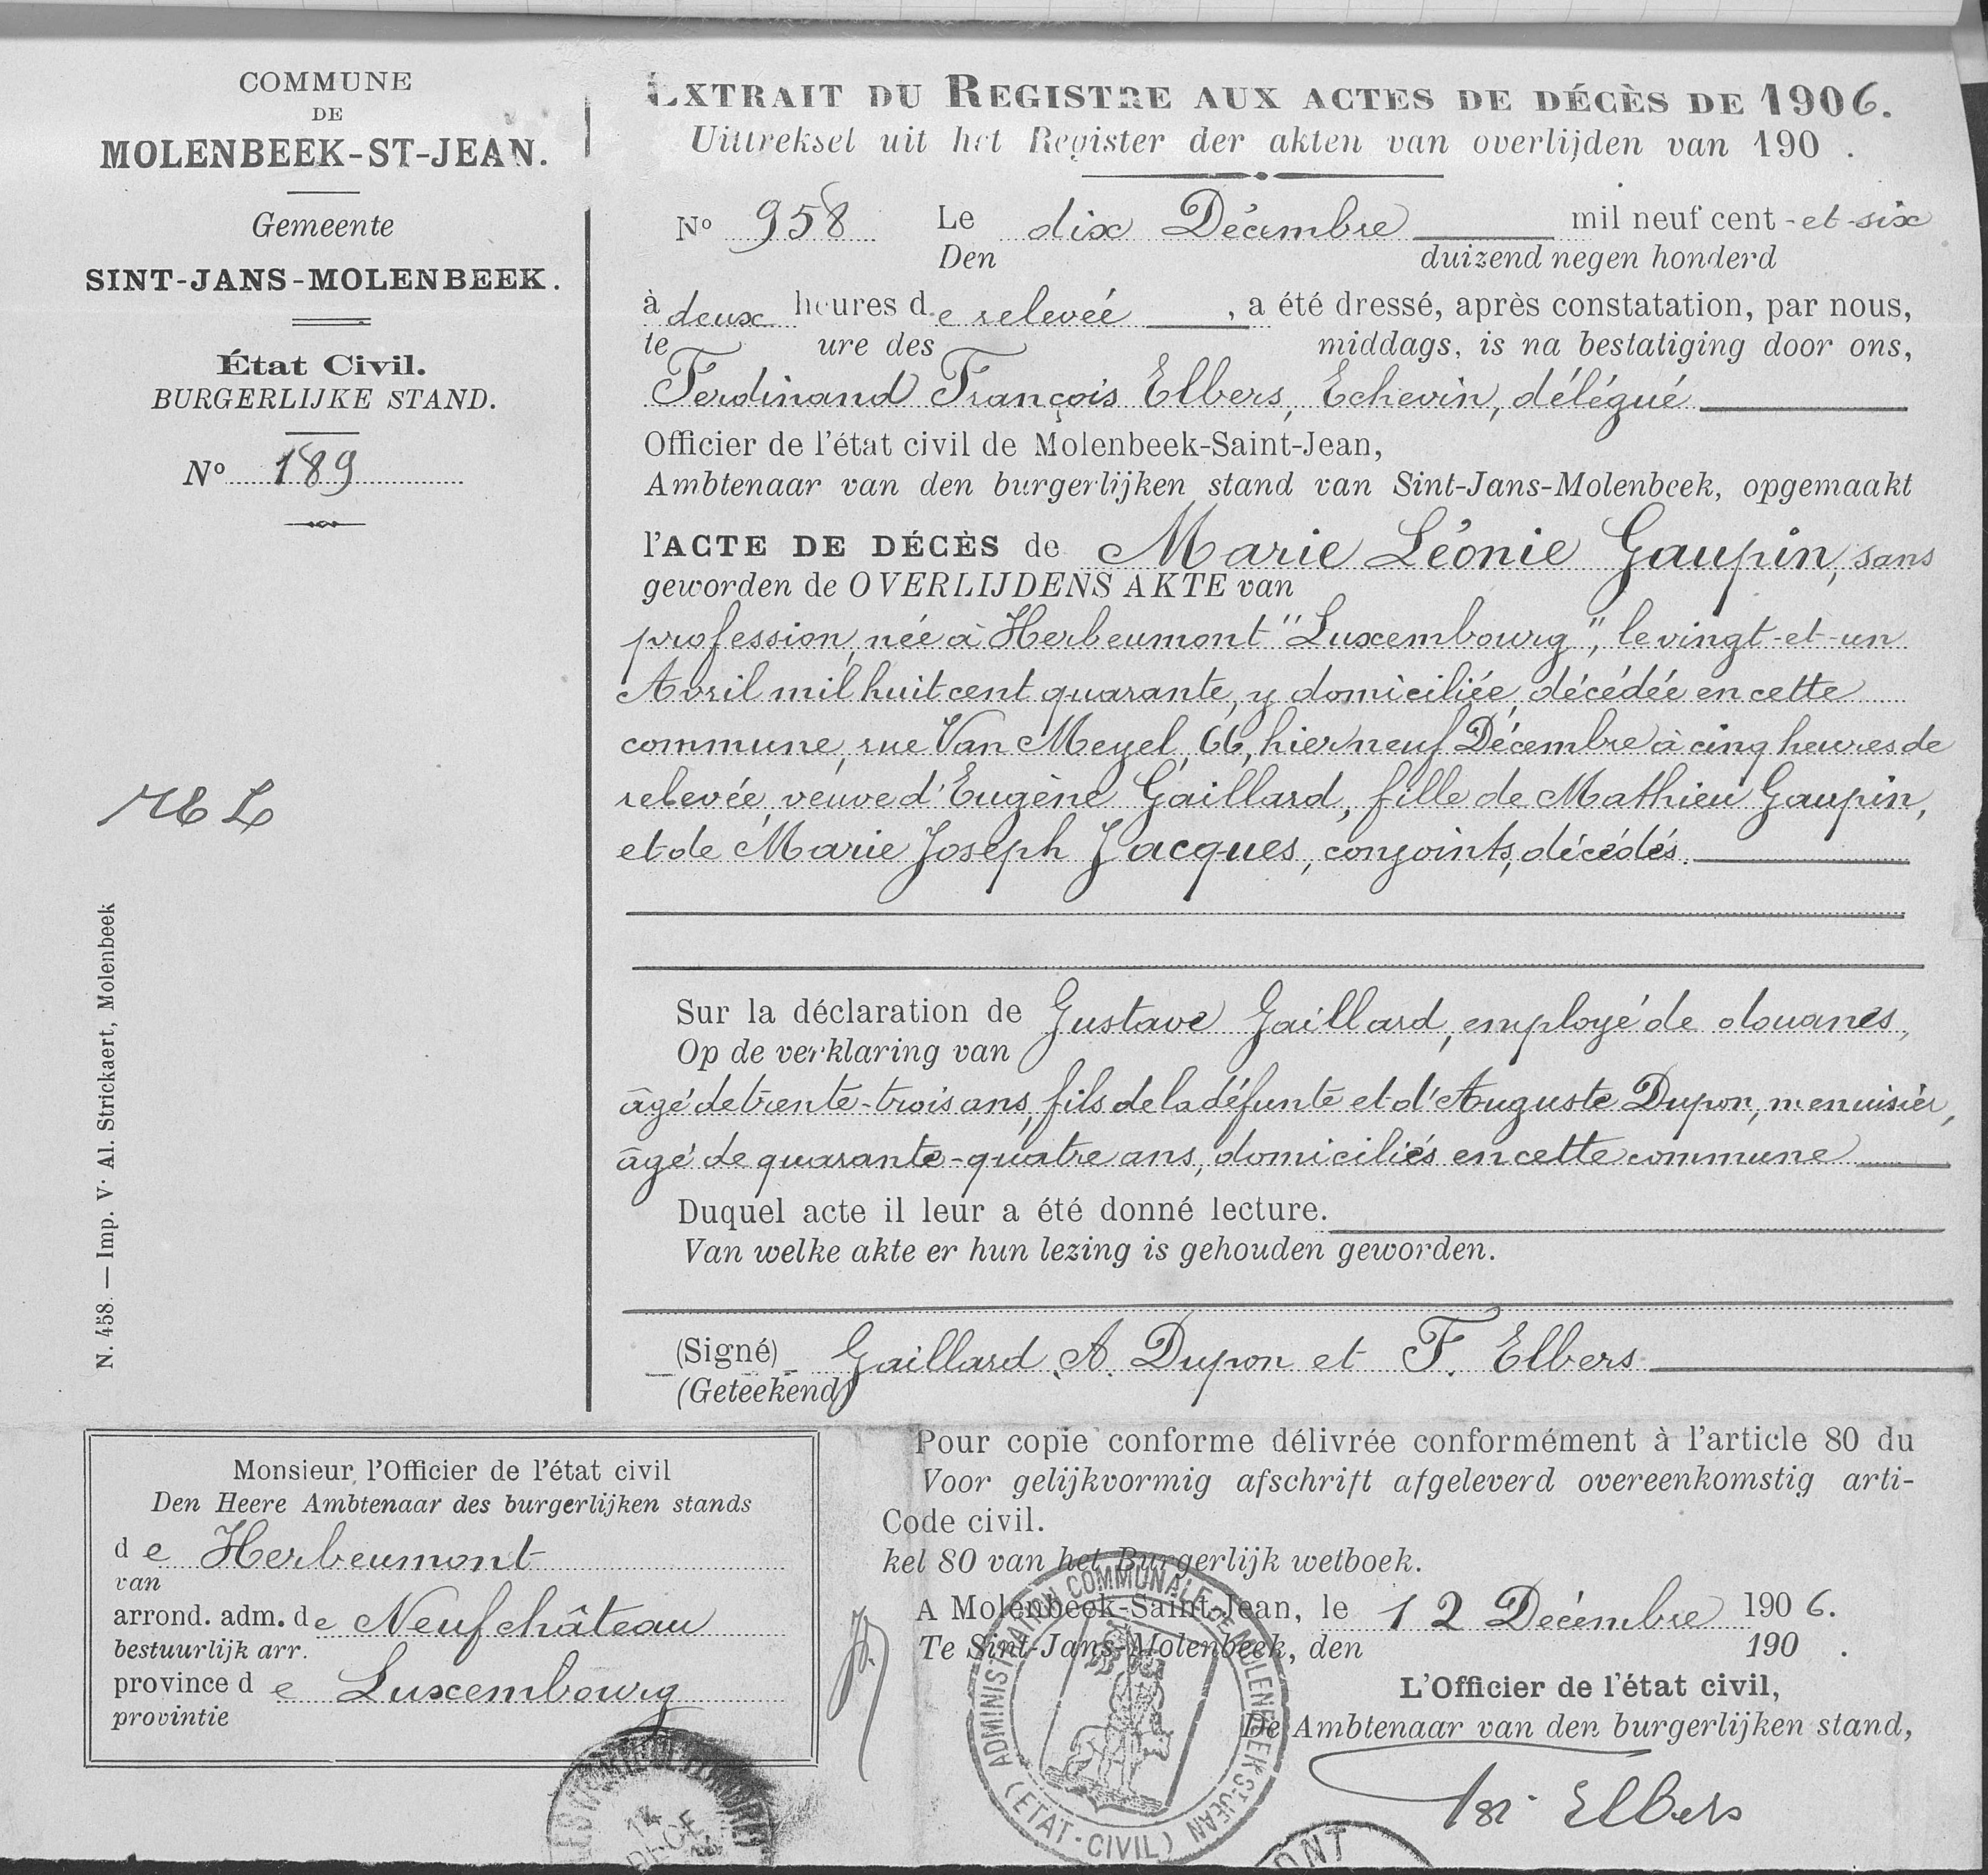 COMMUNE
DE
MOLENBEEK-ST-JEAN.
Gemeente
SINT-JANS-MOLENBEEK.
État Civil.
BURGERLIJKE STAND.
Nº 189
N. 458. — Imp. Vᵉ Al. Strickaert, Molenbeek
EXTRAIT DU REGISTRE AUX ACTES DE DÉCÈS DE 1906.
Uittreksel uit het Register der akten van overlijden van 190 .
Nº 958 Le dix Décembre mil neuf cent-et-six
Den duizend negen honderd
à deux heures de relevée, a été dressé, après constatation, par nous,
te ure des middags, is na bestatiging door ons,
Ferdinand François Elbers, Echevin, délégué
Officier de l'état civil de Molenbeek-Saint-Jean,
Ambtenaar van den burgerlijken stand van Sint-Jans-Molenbeek, opgemaakt
l'ACTE DE DÉCÈS de Marie Léonie Gaupin, sans
geworden de OVERLIJDENS AKTE van
profession, née à Herbeumont "Luxembourg", le vingt-et-un
Avril mil huit cent quarante, y domiciliée, décédée en cette
commune, rue Van Meyel, 66, hier neuf Décembre à cinq heures de
relevée, veuve d'Eugène Gaillard, fille de Mathieu Gaupin,
et de Marie Joseph Jacques, conjoints, décédés.
Sur la déclaration de Gustave Gaillard, employé de douanes,
Op de verklaring van
âgé de trente-trois ans, fils de la défunte et d'Auguste Dupon, menuisier,
âgé de quarante-quatre ans, domiciliés en cette commune
Duquel acte il leur a été donné lecture.
Van welke akte er hun lezing is gehouden geworden.
(Signé) Gaillard, A. Dupon et F. Elbers
(Geteekend)
Monsieur l'Officier de l'état civil
Den Heere Ambtenaar des burgerlijken stands
de Herbeumont
van
arrond. adm. de Neufchâteau
bestuurlijk arr.
province de Luxembourg
provintie
Pour copie conforme délivrée conformément à l'article 80 du
Voor gelijkvormig afschrift afgeleverd overeenkomstig arti-
Code civil.
kel 80 van het Burgerlijk wetboek.
A Molenbeek-Saint-Jean, le 12 Décembre 1906.
Te Sint-Jans-Molenbeek, den 190 .
L'Officier de l'état civil,
De Ambtenaar van den burgerlijken stand,
Elbers
ADMINISTRATION COMMUNALE DE MOLENBEEK-ST-JEAN
(ETAT-CIVIL)
14
DECE
ONT